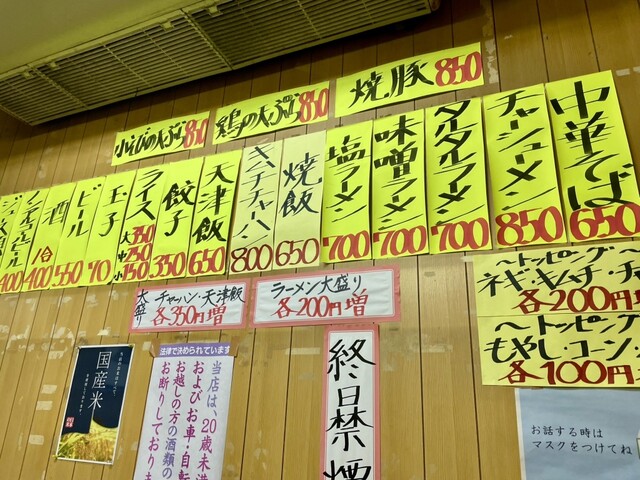 焼豚850
鶏の天ぷら850
小えびの天ぷら850
中華そば
650
チャーシューメン
850
タルタルラーメン
700
味噌ラーメン
700
塩ラーメン
700
焼飯
650
キムチチャーハン
800
天津飯
650
餃子
350
ライス
大350
中250
小150
玉子
70
ビール
550
酒
1合
400
ノンアルコールビール
400
400
大盛り
チャーハン・天津飯
各350円増
ラーメン大盛り
各200円増
〜トッピング〜
ネギ・キムチ・チ
各200円
〜トッピング
もやし・コーン・
各100円
終日禁煙
法律で決められています
当店は、20歳未満
およびお車・自転
お越しの方の酒類の
お断りしており
国産米
お話する時は
マスクをつけてね